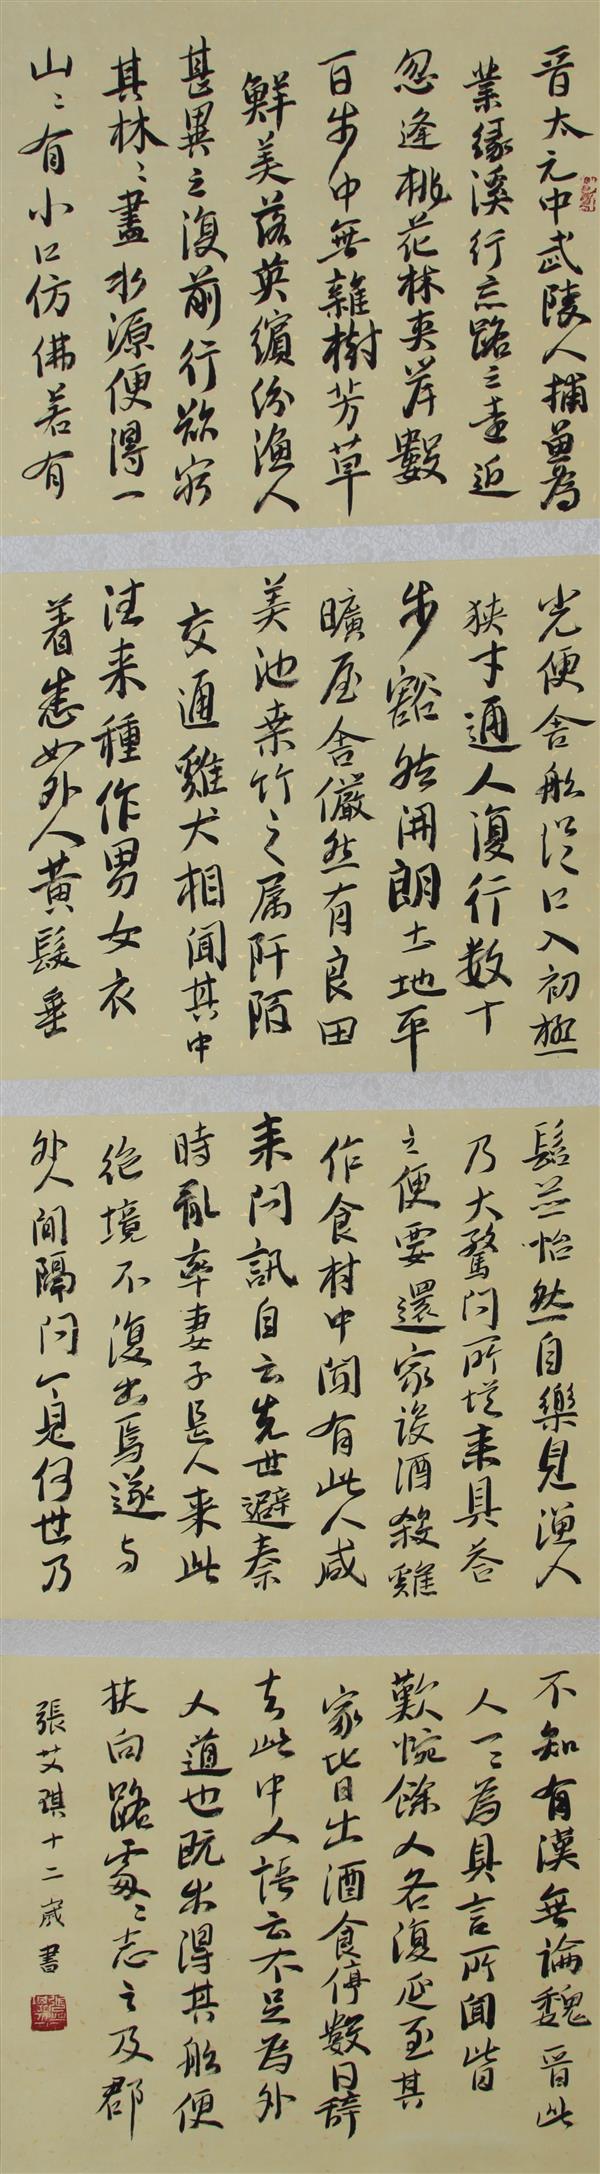 晋太元中武陵人捕魚為
業緣溪行忘路之遠近
忽逢桃花林夾岸數
百步中無雜樹芳草
鮮美落英繽紛漁人
甚異之復前行欲窮
其林〻盡水源便得一
山〻有小口仿佛若有
光便舍船從口入初極
狹才通人復行数十
步豁然開朗土地平
曠屋舍儼然有良田
美池桑竹之属阡陌
交通雞犬相聞其中
往来種作男女衣
着悉如外人黃髮垂
髫並怡然自樂見漁人
乃大驚問所從来具答
之便要還家設酒殺雞
作食村中聞有此人咸
来問訊自云先世避秦
時亂率妻子邑人来此
絕境不復出焉遂與
外人間隔問今是何世乃
不知有漢無論魏晋此
人一一為具言所聞皆
歎惋餘人各復延至其
家皆出酒食停數日辞
去此中人語云不足為外
人道也既出得其船便
扶向路處〻志之及郡
張艾琪十二歲書